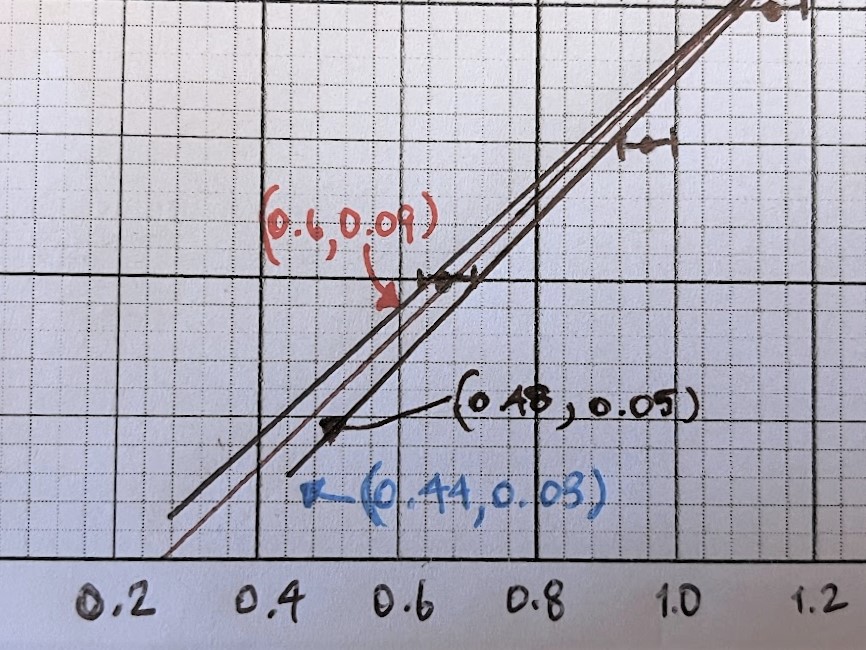 (0.6, 0.09)
(0.48, 0.05)
(0.44, 0.03)
0.2 0.4 0.6 0.8 1.0 1.2